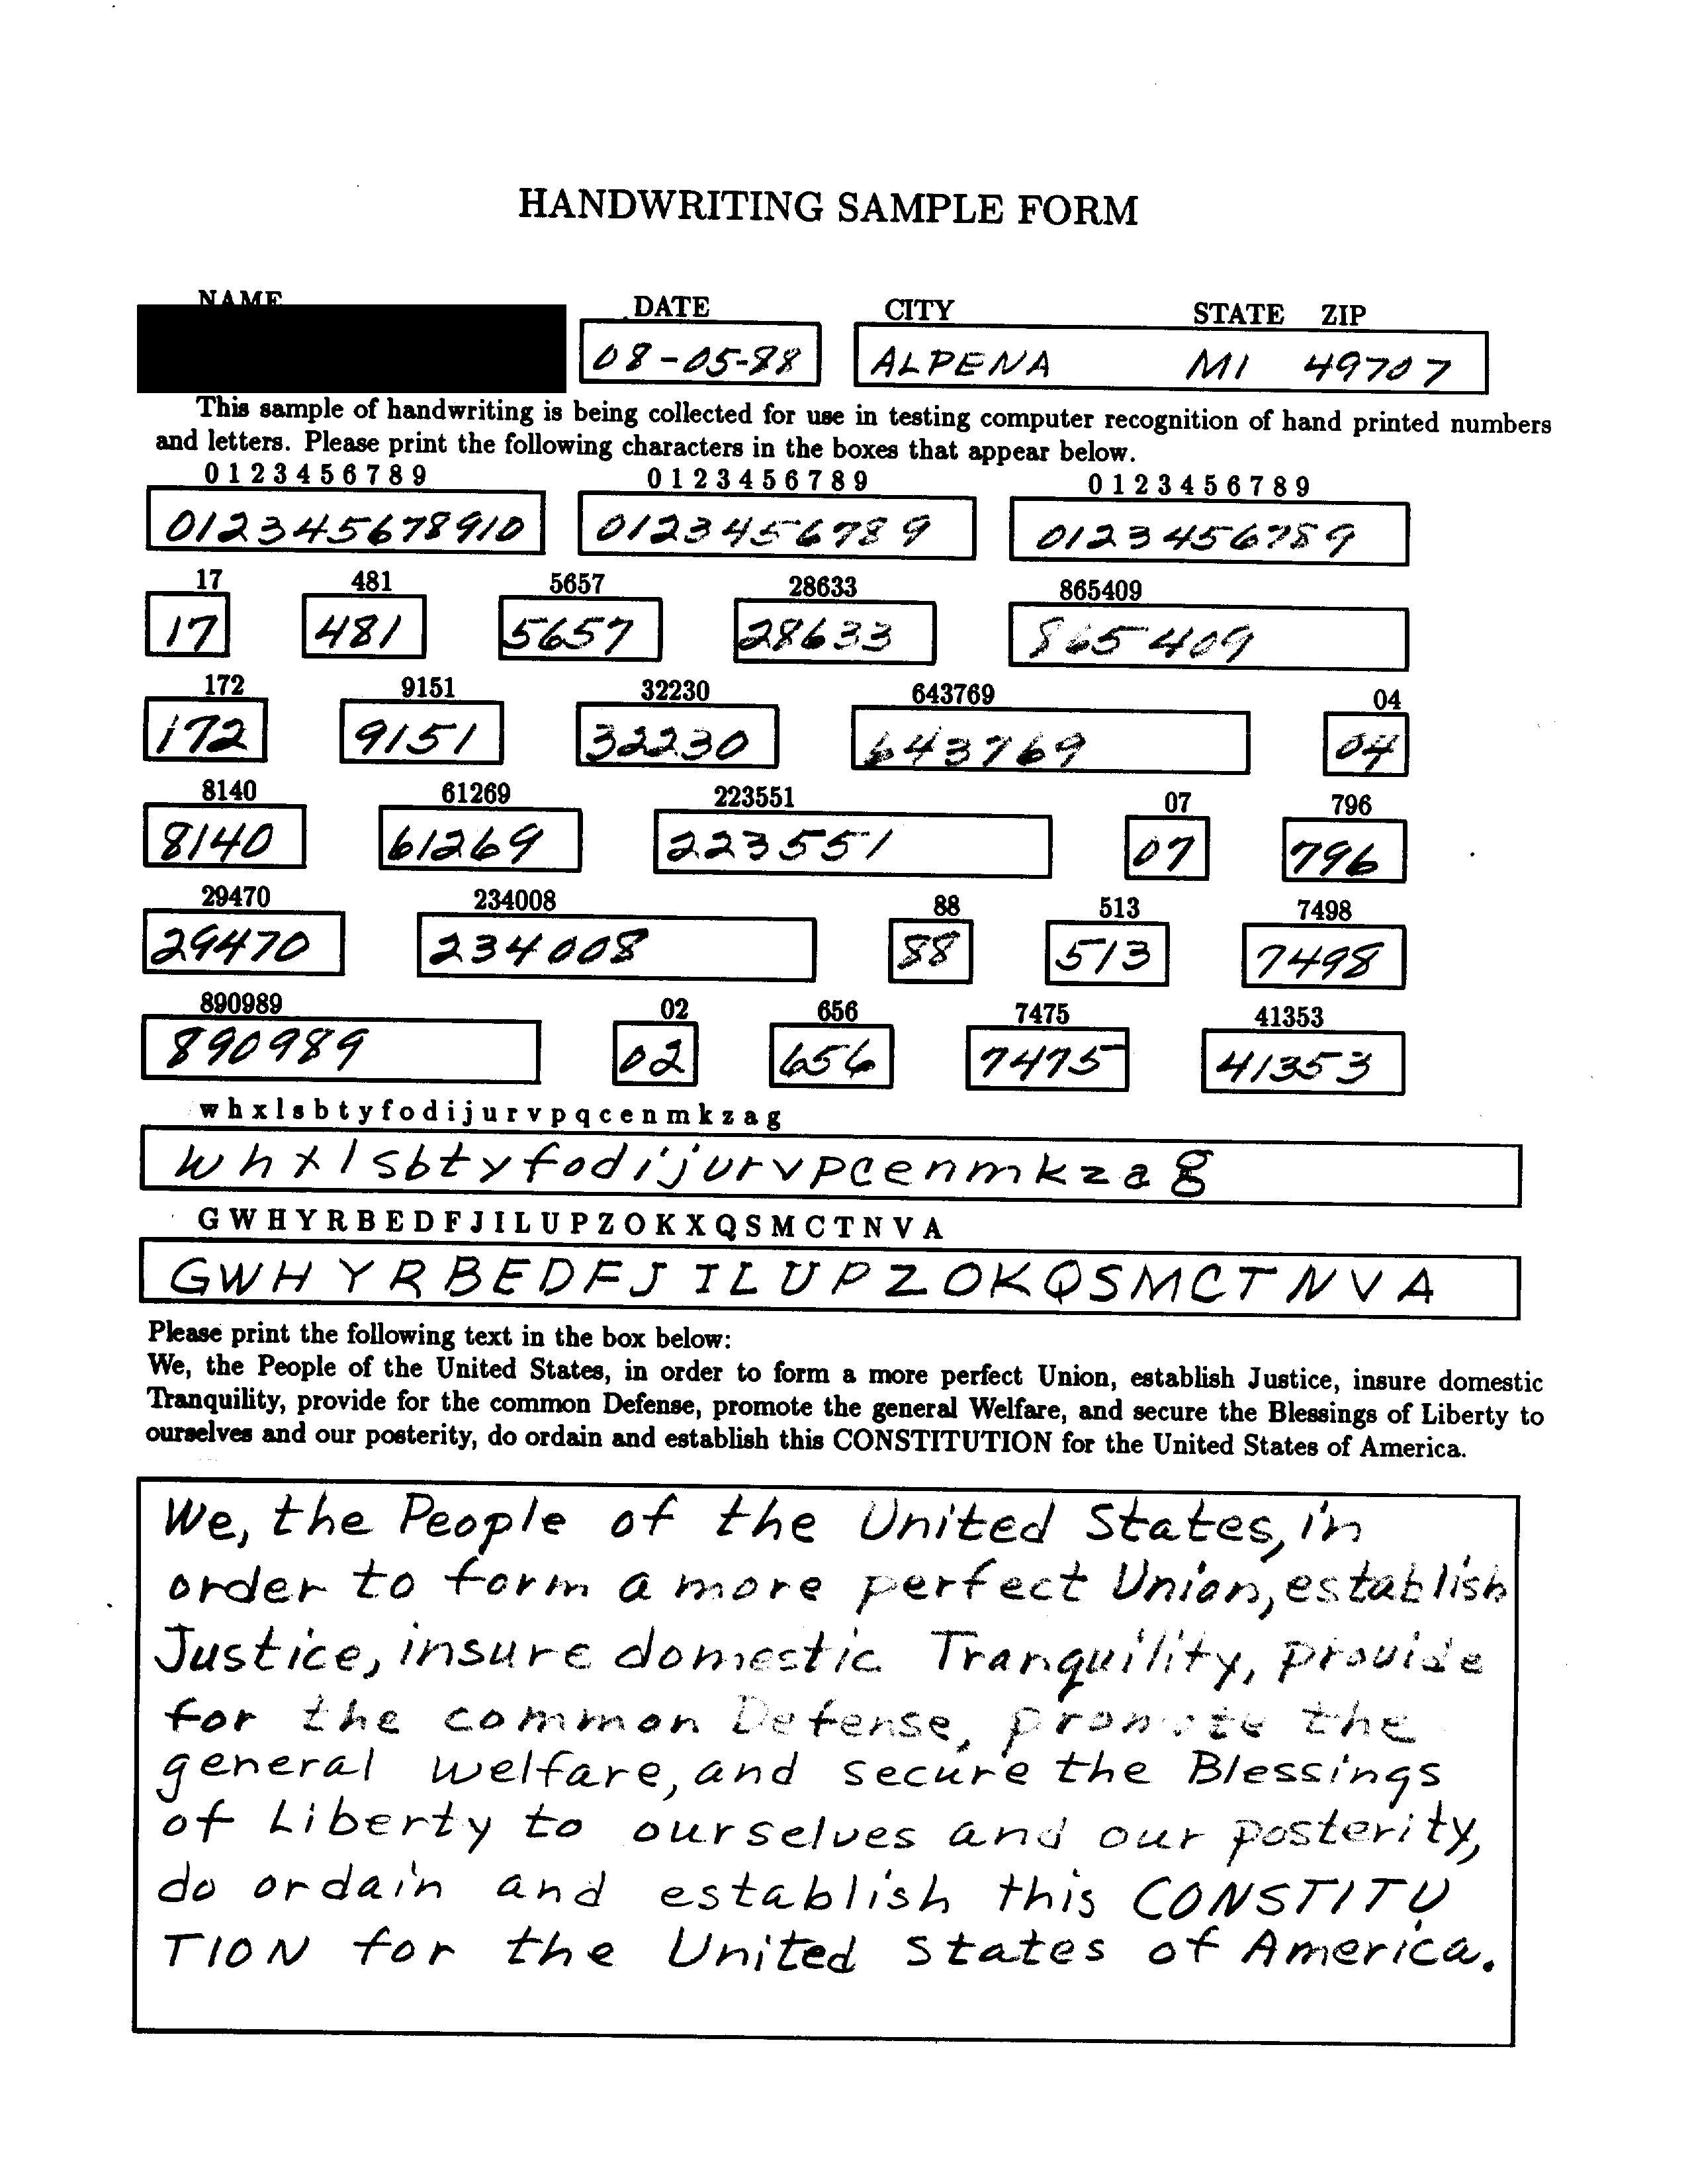 HANDWRITING SAMPLE FORM
NAME DATE CITY STATE ZIP
08-05-88 ALPENA MI 49707
This sample of handwriting is being collected for use in testing computer recognition of hand printed numbers
and letters. Please print the following characters in the boxes that appear below.
0 1 2 3 4 5 6 7 8 9 0 1 2 3 4 5 6 7 8 9 0 1 2 3 4 5 6 7 8 9
012345678910 0123456789 0123456789
17 481 5657 28633 865409
17 481 5657 28633 865409
172 9151 32230 643769 04
172 9151 32230 643769 04
8140 61269 223551 07 796
8140 61269 223551 07 796
29470 234008 88 513 7498
29470 234008 88 513 7498
890989 02 656 7475 41353
890989 02 656 7475 41353
w h x l s b t y f o d i j u r v p q c e n m k z a g
w h x l s b t y f o d i j u r v p c e n m k z a g
G W H Y R B E D F J I L U P Z O K X Q S M C T N V A
G W H Y R B E D F J I L U P Z O K Q S M C T N V A
Please print the following text in the box below:
We, the People of the United States, in order to form a more perfect Union, establish Justice, insure domestic
Tranquility, provide for the common Defense, promote the general Welfare, and secure the Blessings of Liberty to
ourselves and our posterity, do ordain and establish this CONSTITUTION for the United States of America.
We, the People of the United States, in
order to form a more perfect Union, establish
Justice, insure domestic Tranquility, provide
for the common Defense, promote the
general welfare, and secure the Blessings
of Liberty to ourselves and our posterity,
do ordain and establish this CONSTITU
TION for the United States of America.